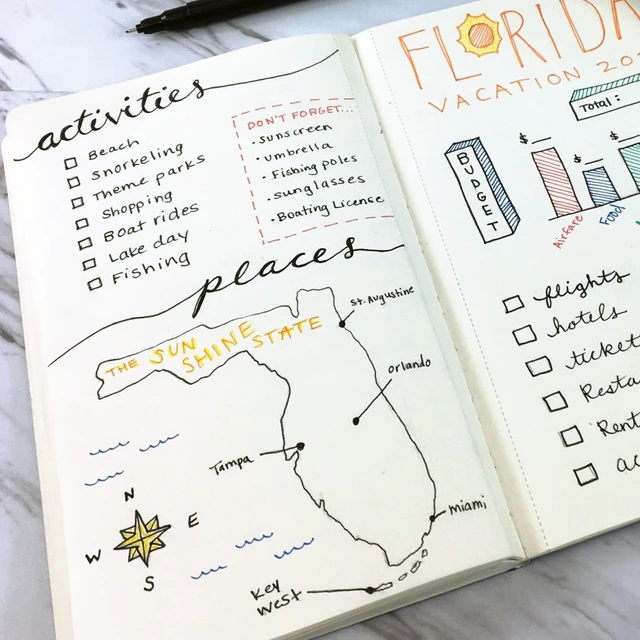 activities
Beach
Snorkeling
Theme parks
Shopping
Boat rides
Lake day
Fishing
DON'T FORGET...
• sunscreen
• umbrella
• Fishing poles
• sunglasses
• Boating License
places
THE SUN SHINE STATE
St. Augustine
Orlando
Tampa
Miami
Key West
N
W
E
S
FLORIDA
VACATION
Total:
BUDGET
$
$
$
Airfare
Food
flights
hotels